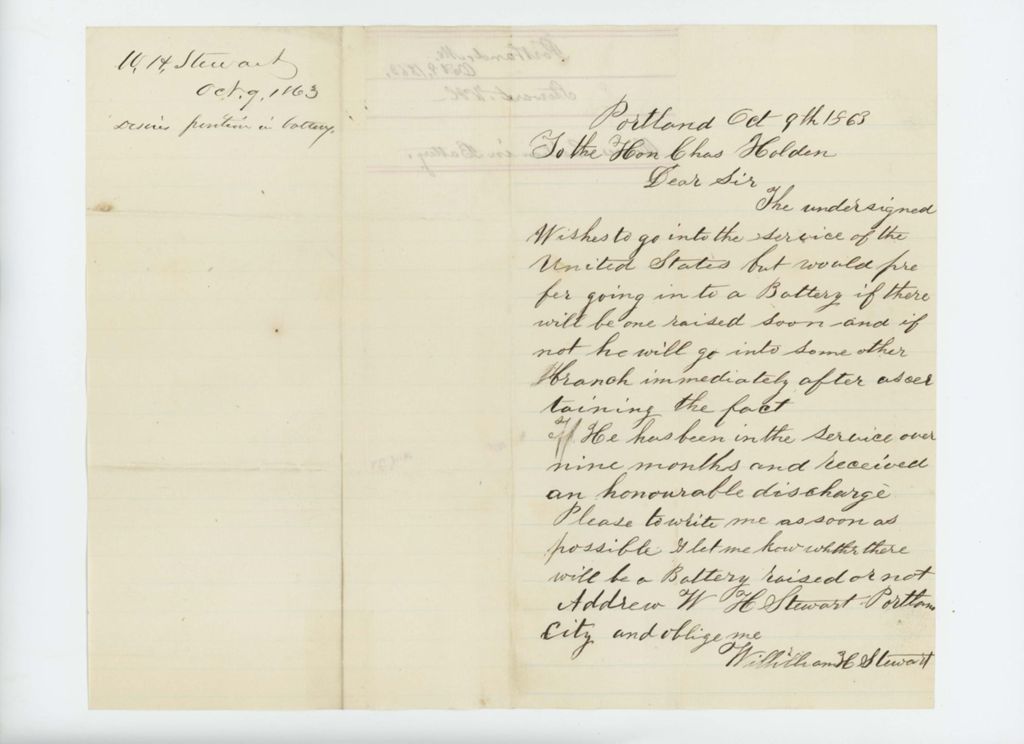 W, H, Stewart
Oct. 9, 1863
Desires position in battery.
Portland, Me.
Oct 9, 1863.
Stewart, W H
in Battery.
Portland Oct 9th 1863
To the Hon Chas Holden
Dear Sir
The undersigned
Wishes to go into the service of the
United States but would pre
fer going in to a Battery if there
will be one raised soon and if
not he will go into some other
Branch immediately after ascer
taining the fact
He has been in the service over
nine months and received
an honourable discharge
Please to write me as soon as
possible & let me know whther there
will be a Battery raised or not
Address W H Stewart Portland
City and oblige me
William H Stewart